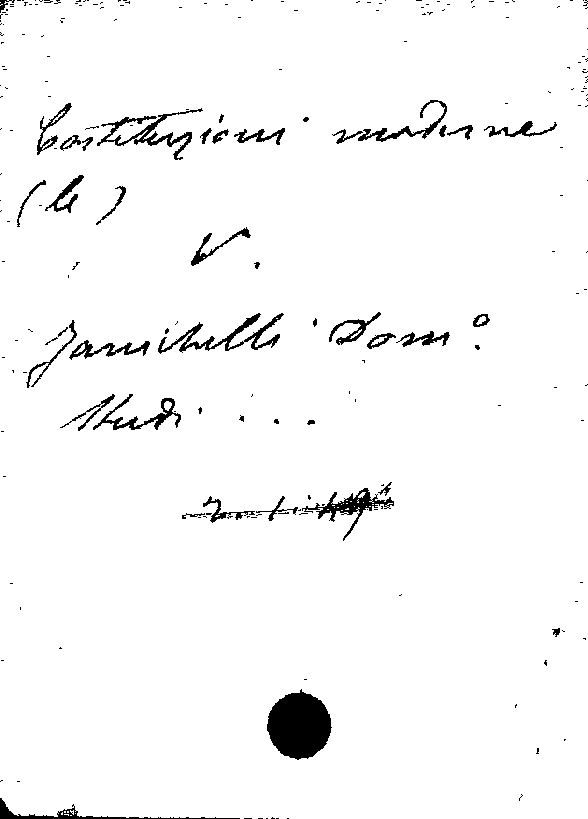 Costituzioni moderne
(le)
V.
Zanichelli Dom.º
Studi . . .